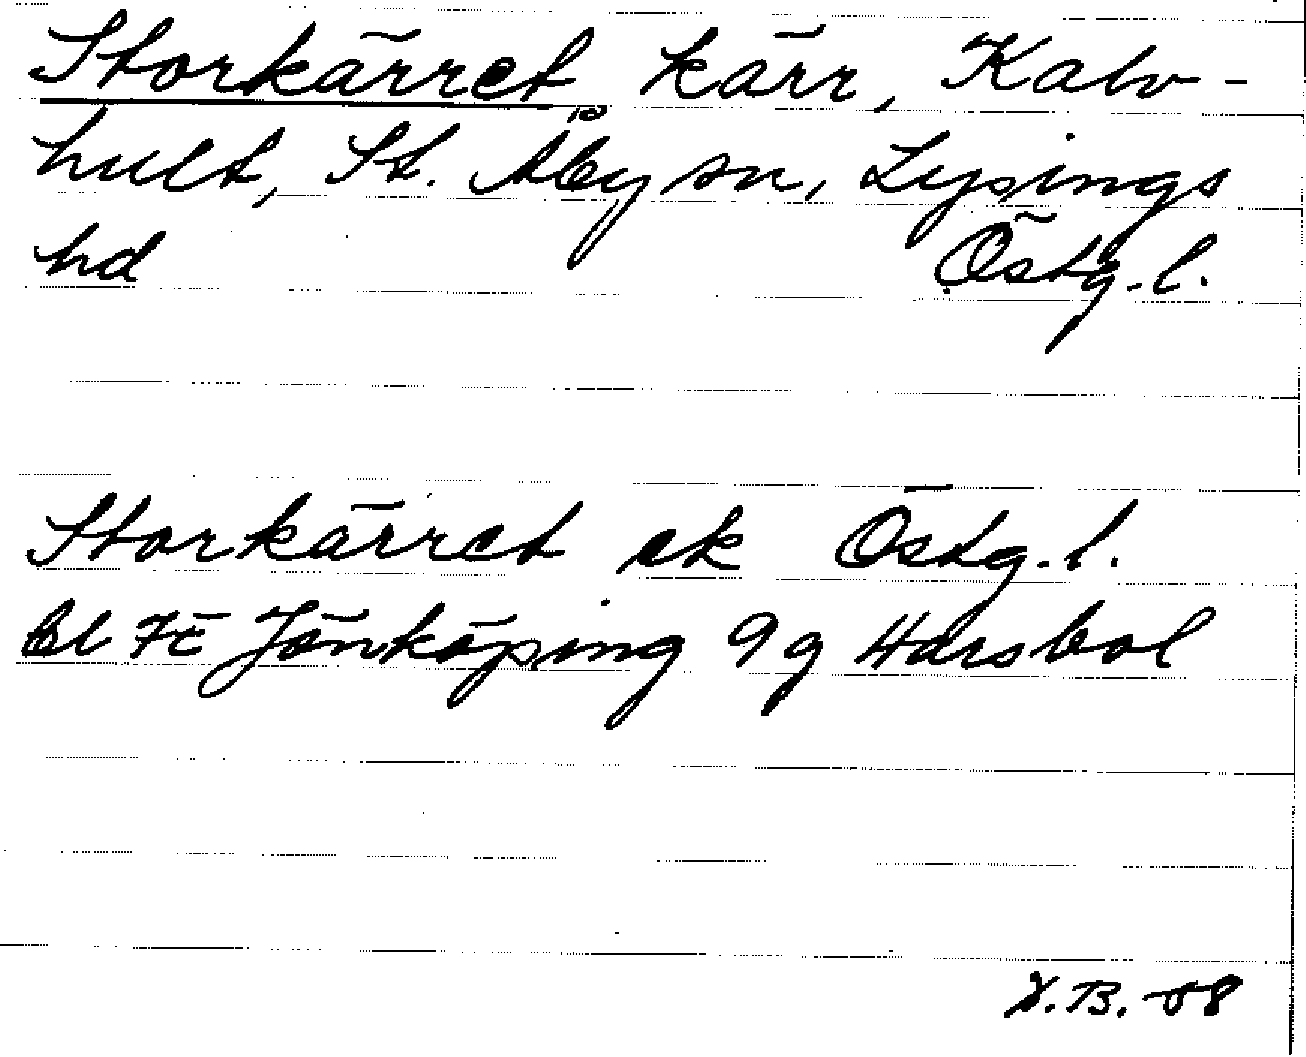 Storkärret, kärr, Kalv-
hult, St. Åby sn, Lysings
hd Östg.l.
Storkärret ek Östg.l.
Bl 7E Jönköping 9g Harsbol
V.B. -08